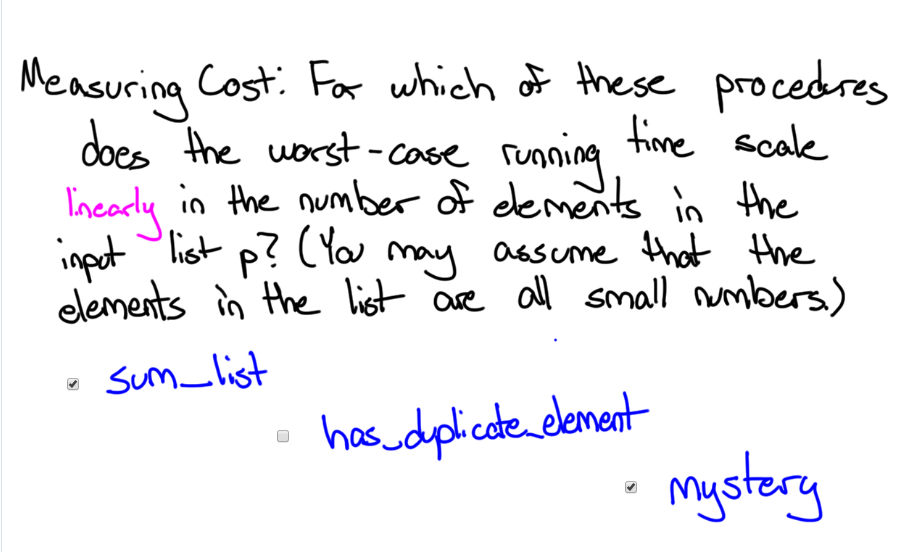 Measuring Cost: For which of these procedures
does the worst-case running time scale
linearly in the number of elements in the
input list p? (You may assume that the
elements in the list are all small numbers.)
sum_list
has_duplicate_element
mystery